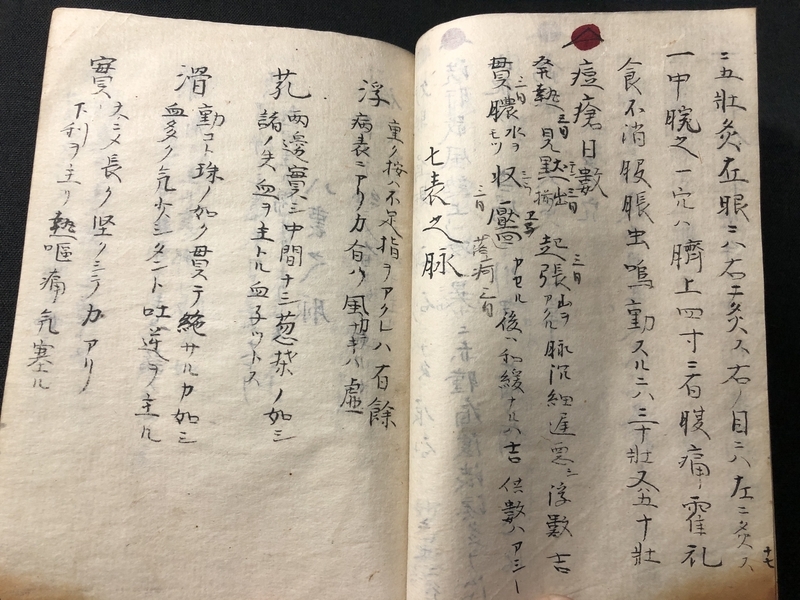 二五壮灸左眼ニハ右ニ灸ス右ノ目ニハ左ニ灸ス
一中脘之一穴ハ臍上四寸ニ有腹痛霍乱
食不消服脹虫鳴動スルニハ三十壮又五十壮
十七
痘瘡日数
発熱三日見点三日出揃三日起張三日山ヲアクル脉沉細遅悪シ浮数吉
貫膿三日水ヲモツ収靨三日カセル後ハ和緩ナルハ吉供数ハアシー
落痂三日
七表之脉
浮 重ク按ハ不足指ヲアクレハ有餘
病表ニアリ力有ハ風力ナキハ虚
芤 両邊實ニ中間ナニ葱葉ノ如シ
諸ノ失血ヲ主トル血子ツトス
滑 動コト珠ノ如ク貫テ絶サルカ如シ
血多ク気少シタント吐逆ヲ主ル
實 大ニメ長ク堅クシテ力アリ
下利ヲ主リ熱嘔痛気塞ル